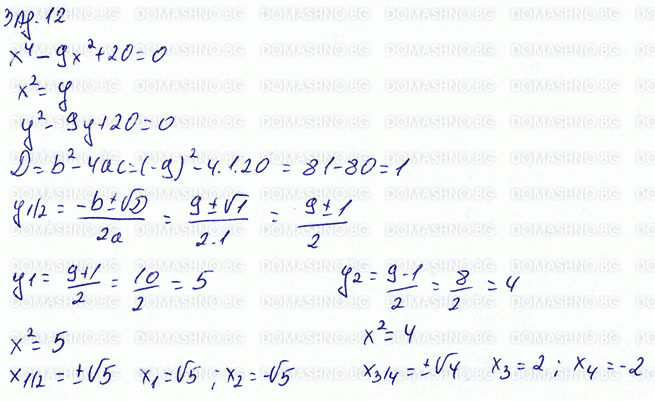 Зад. 12
x⁴ - 9x² + 20 = 0
x² = y
y² - 9y + 20 = 0
D = b² - 4ac = (-9)² - 4.1.20 = 81 - 80 = 1
y1/2 = (-b ± √D)/2a = (9 ± √1)/2.1 = (9 ± 1)/2
y1 = (9+1)/2 = 10/2 = 5 y2 = (9-1)/2 = 8/2 = 4
x² = 5 x² = 4
x1/2 = ±√5 x1 = √5 ; x2 = -√5 x3/4 = ±√4 x3 = 2 ; x4 = -2
DOMASHNO.BG